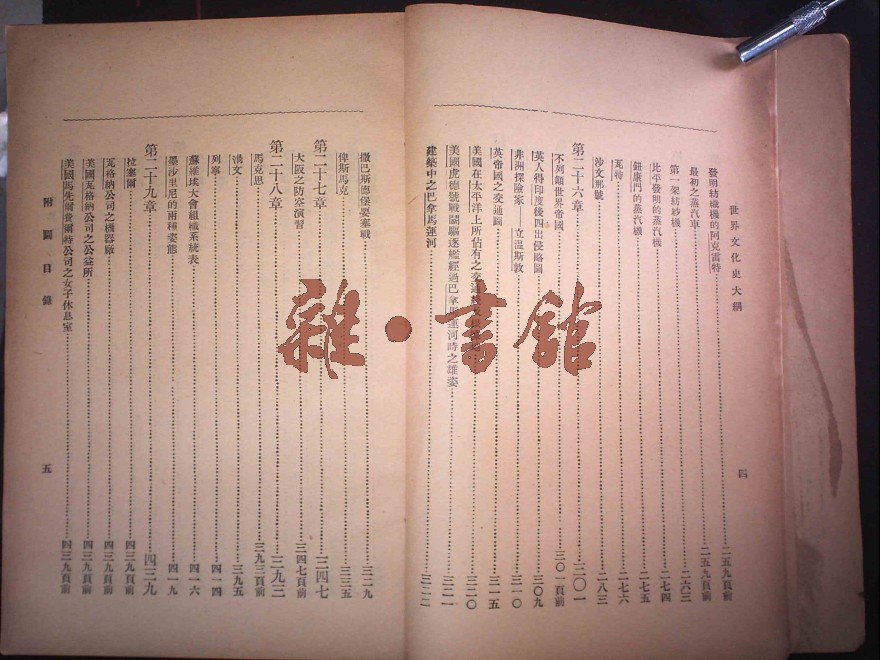 世界文化史大綱
四
發明紡織機的阿克雷特……二五九頁前
最初之蒸汽車……二五九頁前
第一架紡紗機……二六三
比平發明的蒸汽機……二七四
鈕康門的蒸汽機……二七五
瓦特……二七六
沙文那號……二八三
第二十六章……三〇一
不列顛世界帝國……三〇一頁前
英人得印度後四出侵略圖……三〇九
非洲探險家——立溫斯敦……三一〇
英帝國之交通圖……三一五
美國在太平洋上所佔有之交通……三二〇
美國虎德號戰鬭驅逐艦經過巴拿馬運河時之雄姿……三二一
建築中之巴拿馬運河……三二二
撒巴斯德堡要塞戰……三二九
俾斯馬克……三三五
第二十七章……三四七
大阪之防空演習……三四七頁前
第二十八章……三九三
馬克思……三九三頁前
湯文……三九五
列寧……四一四
蘇維埃大會組織系統表……四一六
墨沙里尼的兩種姿態……四一九
第二十九章……四三九
拉塞爾……四三九頁前
瓦格納公司之機器廠……四三九頁前
美國瓦格納公司之公益所……四三九頁前
美國馬先爾費爾特公司之女子休息室……四三九頁前
附圖目錄
五
雜·書館